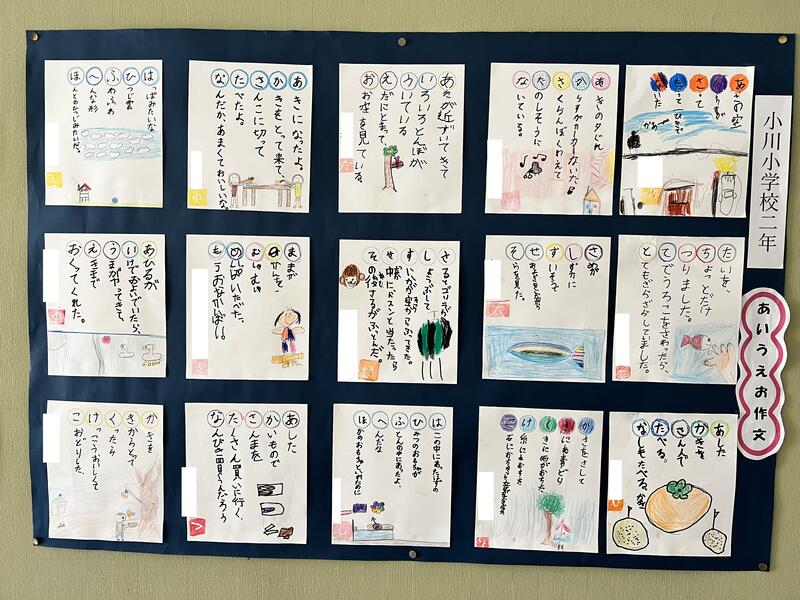 小川小学校二年
あいうえお作文
あさの空
あきの夕ぐれ
からすがカーカーないた。
さくらんぼくわえて
たのしそうに
ないている。
あきが近ずいてきて
いろいろとんぼが
ういている
えだにとまって、
お空を見ている。
あきになったよ。
かきをとって来て、
さんこに切って
たべたよ。
なんだか、あまくておいしいな。
はっぱみたいな
ひつじ雲
ふわふわ
へんな形
ほんとのひつじみたいだ。
たいを、
ちょっとだけ
つりました。
てでうろこをさわったら、
とてもざらざらしていました。
さめが
しずかに
すいそうで
そらを見た。
さるとゴリラが
しょうぶして
すいかが空からふってきた。
せ中にドスンと当たったら
その後さるがぶっとんだ。
ままが
みかんを
むいている
めんぱいたべた。
もうおなかいっぱい。
あひるが
いけでおよいでいたら、
うまがやってきて、
えきまで
おくってくれた。
あした
かきを
さん人で
たべる。
なしもたべる、かな？
かさをさして
はこの中にあったはずの
ひみつのおもちゃが
ふくろの中にあったよ。
へんだな
ほかのおもちゃといれたのに
あした
かいもので
さんまを
たくさん買いに行く。
なんびき買うんだろう
かきを
きからとって
くったら
けっこうおいしくて
こおどりした。